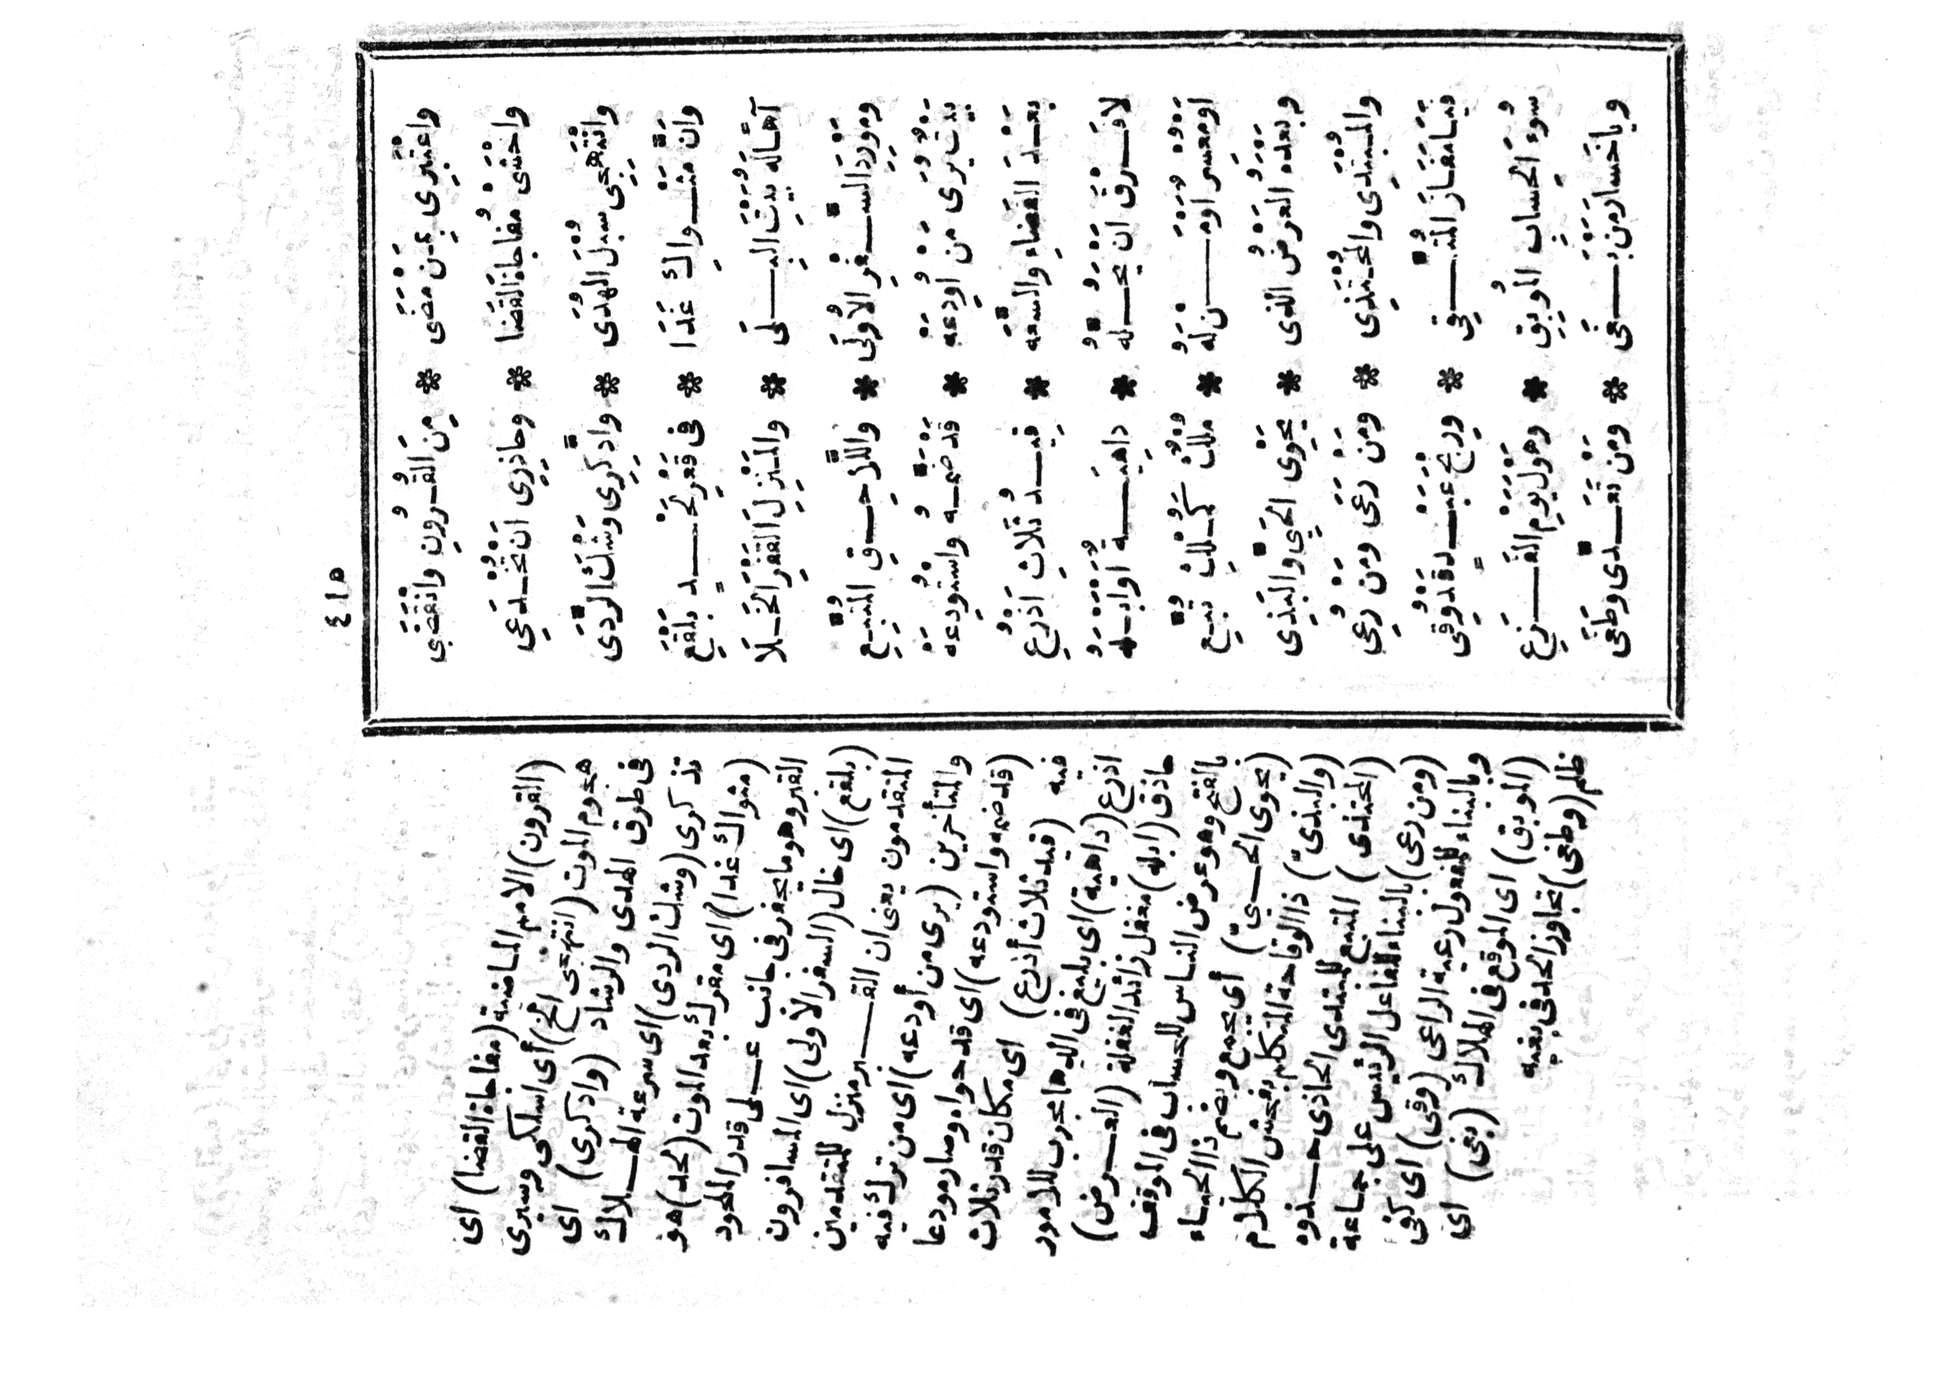 ٤١٥
وَاعْتَبِرِى بِمَنْ مَضَى * مِنَ القُرُونِ وَانْقَضَى
وَاخْشَىْ مُفَاجَاةَ القَضَا * وَحَاذِرِى اَنْ تُخْدَعِي
وَانْتَهِجِى سُبْلَ الهُدَى * وَادَّكِرِى وَشْكَ الرَّدَى
وَاَنَّ مَثْواكِ غَدَا * فِى قَعْرِ لَحْدٍ بَلْقَعِ
آهًا لَهُ بَيْتِ البِلَى * وَالمَنْزِلِ القَفْرِ الخَلَا
وَمَوْرِدِ السَّفْرِ الاُولَى * وَاللَّاحِقِ المُتَّبِعِ
بَيْتٌ يُرَى مَنْ اُودِعَهْ * قَدْ ضَمَّهُ وَاسْتُوْدِعَهْ
بَعْدَ الفَضَاءِ وَالسَّعَهْ * قِيدَ ثَلَاثِ اَذْرُعِ
لَا فَرْقَ اَنْ يَحُلَّهُ * دَاهِيَةٌ اَوْ اَبْلَهُ
اَوْ مُعْسِرٌ اَوْ مَنْ لَهُ * مُلْكٌ كَمُلْكِ تُبَّعِ
وَبَعْدَهُ العَرْضُ الَّذِى * يَحْوِى الحَيِىَّ وَالبَذِى
وَالمُبْتَدِى وَالمُحْتَذِى * وَمَنْ رَعَى وَمَنْ رُعِى
فَيَا مَفَازَ المُتَّقِى * وَرِبْحَ عَبْدٍ قَدْ وُقِى
سُوءَ الحِسَابِ المُوبِقِ * وَهَوْلَ يَوْمِ الفَزَعِ
وَيَا خَسَارَ مَنْ بَغَى * وَمَنْ تَعَدَّى وَطَغَى
(القرون) الامم الماضية (مفاجاة القضا) اى
هجوم الموت (انتهجى الخ) أى اسلكى وسيرى
فى طرق الهدى والرشاد (وادكرى) اى
تذكرى (وشك الردى) اى سرعة الهلاك
(مثواك غدا) اى مقرك بعد الموت (لحد) هو
القبر وهو ما يحفر فى جانب على قدر الملحود
(بلقع) اى خال (السفر الأولى) اى المسافرون
المتقدمون يعنى ان القبر منزل للمتقدمين
والمتأخرين (يرى من أودعه) اى من ترك فيه
(قد ضمه واستودعه) اى قد حواه وصار مودعا
فيه (قيد ثلاث أذرع) اى مكان قدر ثلاث
اذرع (داهية) اى بليغ فى الدها مجرب للامور
حاذق (ابله) مغفل زائد الغفلة (العرض)
بالفتح وهو عرض الناس للحساب فى الموقف
(يحوى الحيىّ) أى يجمع ويضم ذا الحياء
(والبذىّ) ذا الوقاحة المتكلم بفحش الكلام
(المحتذى) المتبع للمبتدى الحاذى حذوه
(ومن رعى) بالبناء للفاعل الرئيس على جماعة
وبالبناء للمفعول رعية الراعى (وقى) اى كفى
(الموبق) اى الموقع فى الهلاك (بغى) اى
ظلم (وطغى) تجاوز الحد فى بغيه